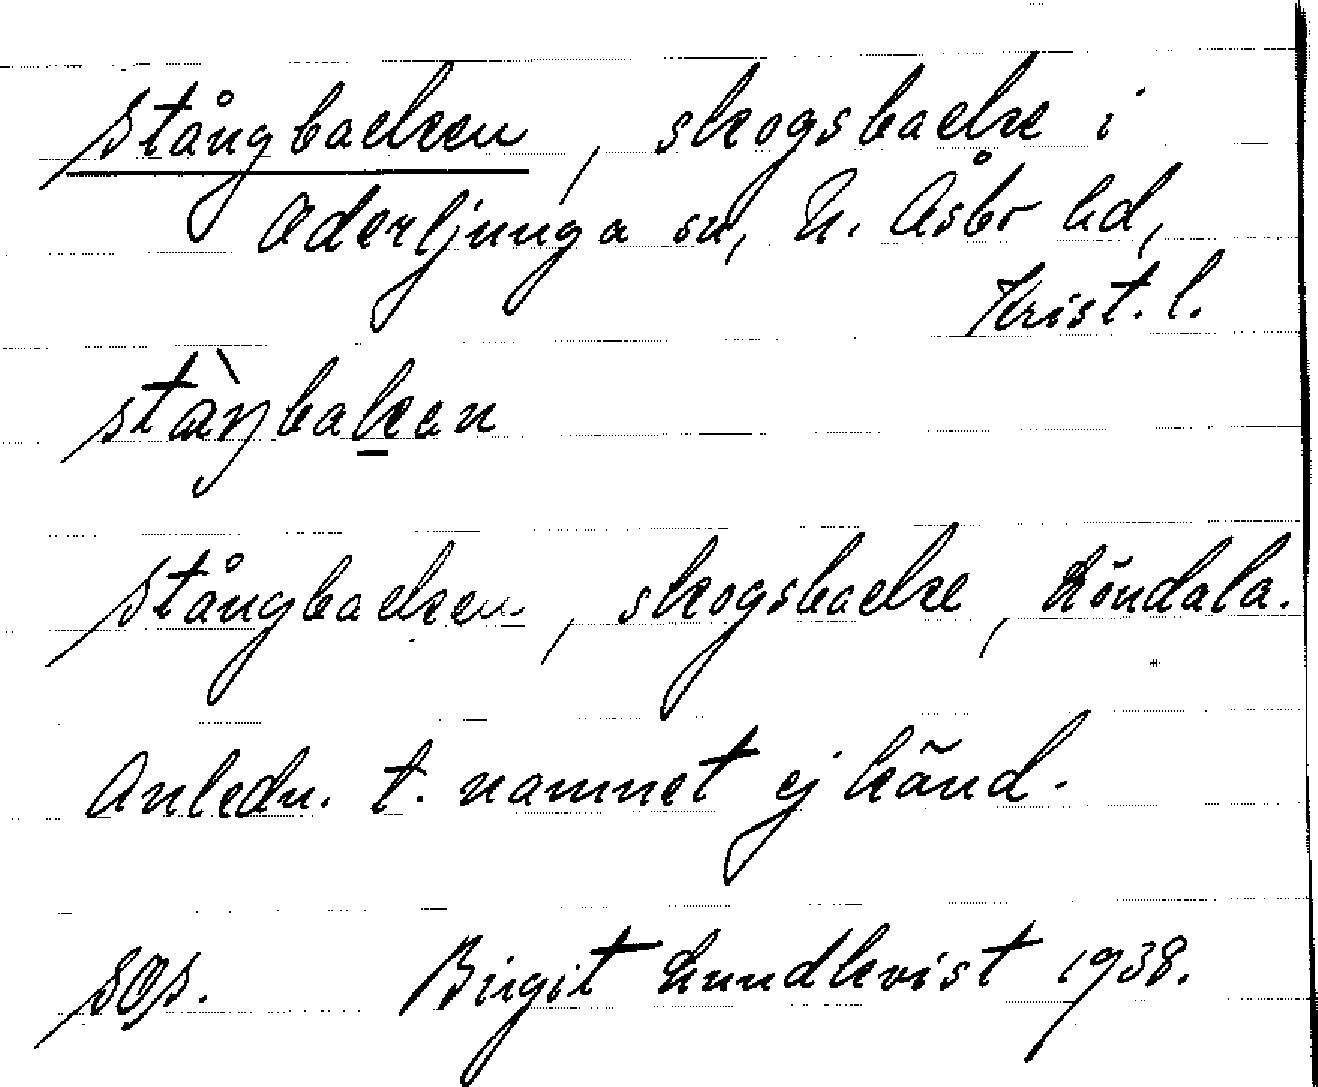 Stångbacken, skogsbacke i
Oderljunga sn, N. Åsbo hd,
Krist. l.
stàŋbaken
Stångbacken, skogsbacke, Löndala.
Anledn. t. namnet ej känd.
SOS. Birgit Lundkvist 1938.